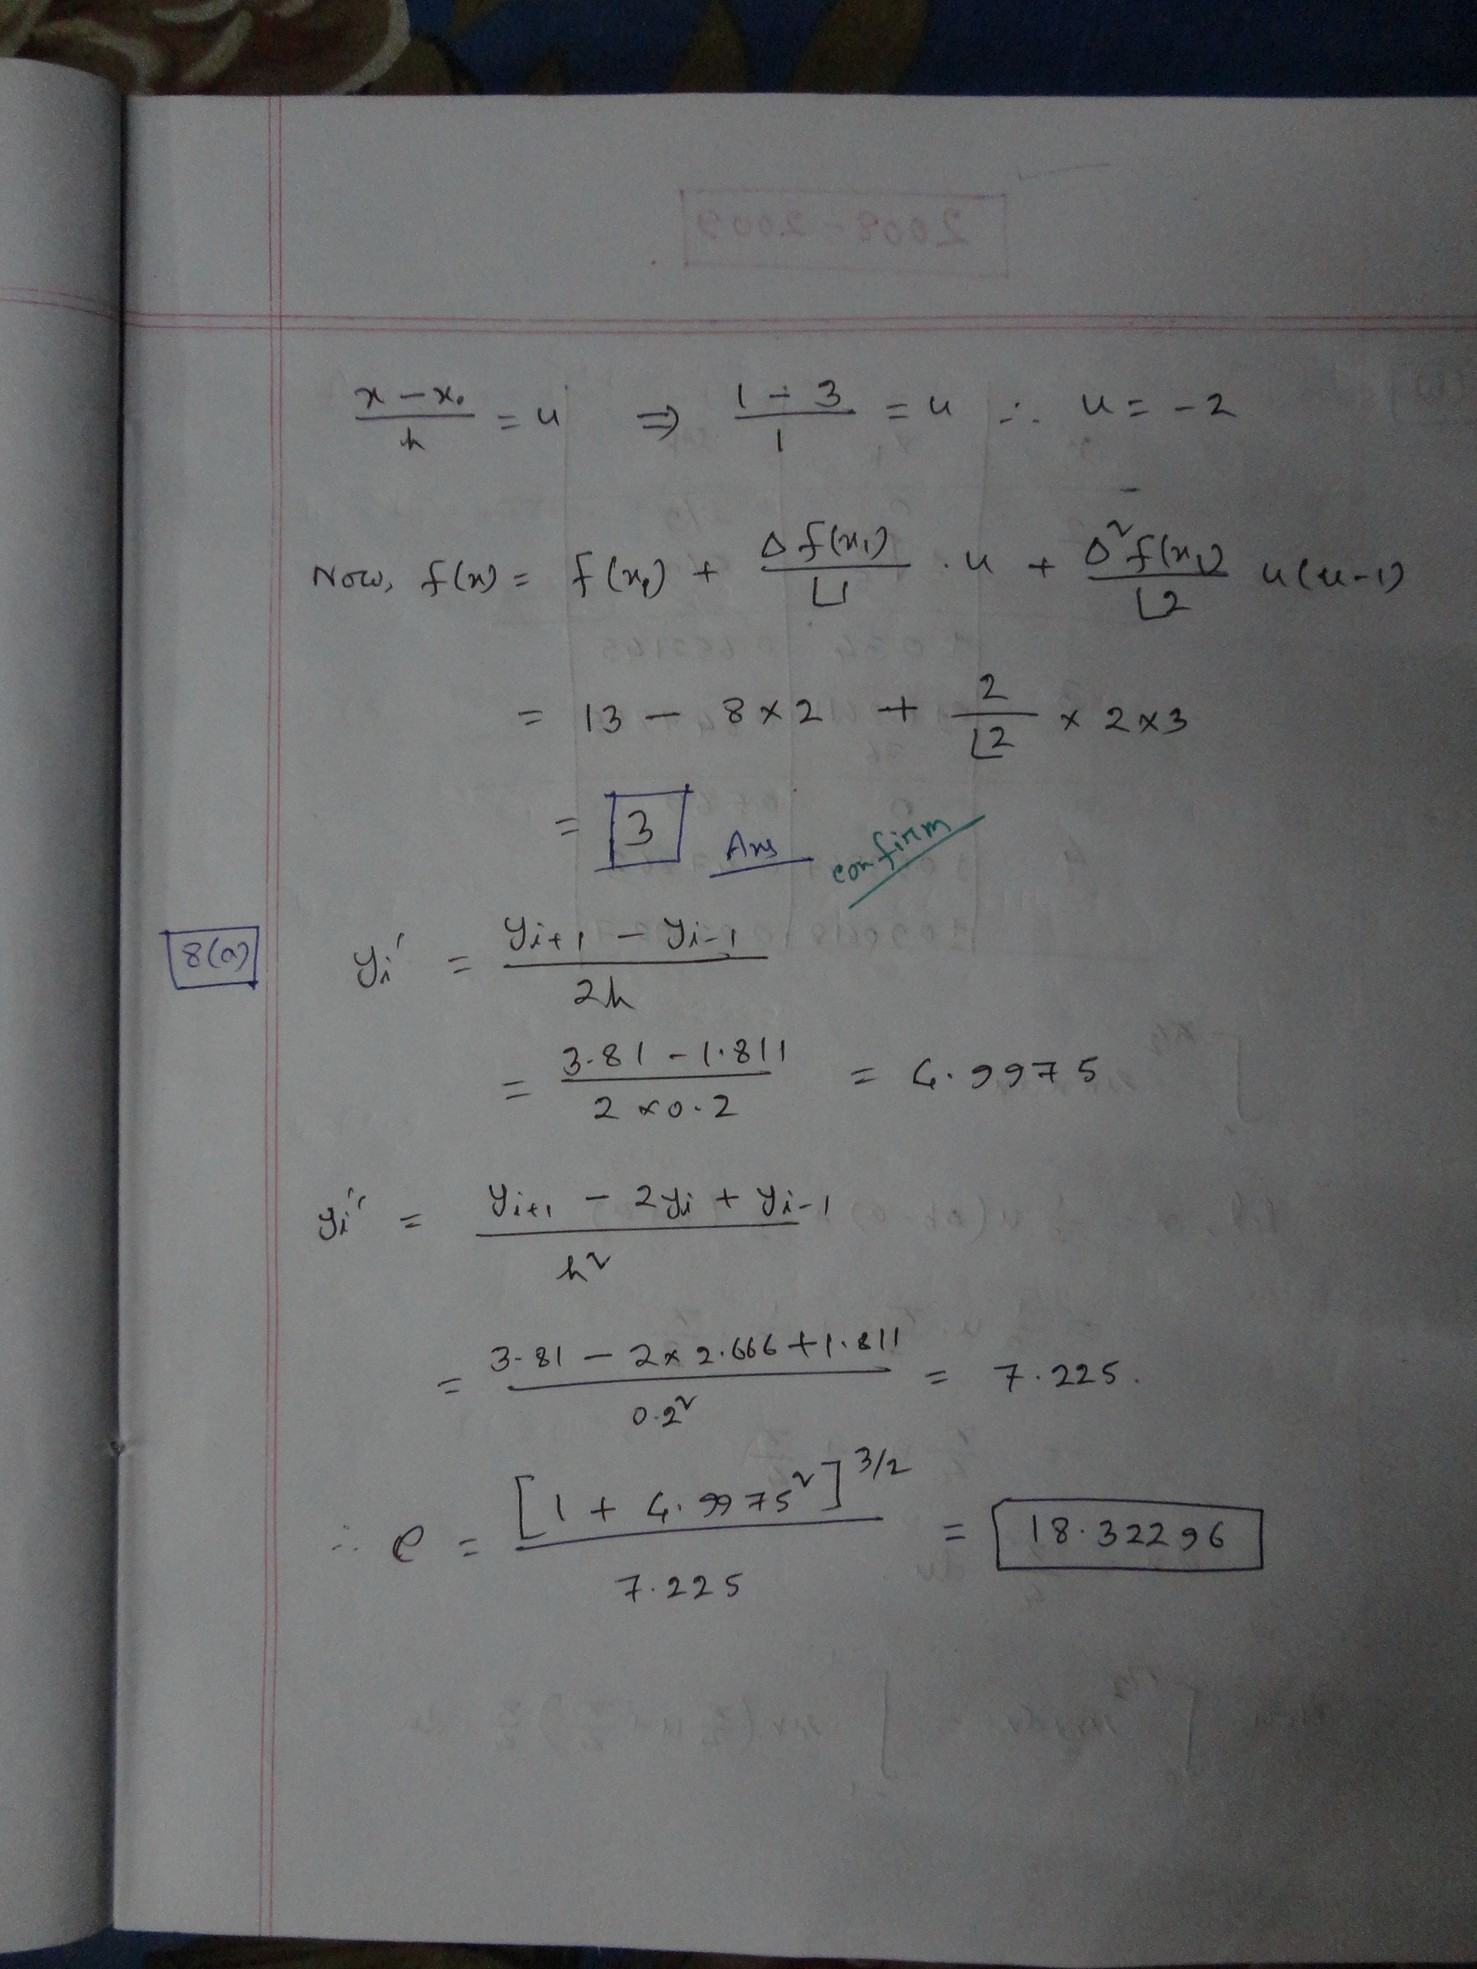 (x - x₀)/h = u ⇒ (1 - 3)/1 = u ∴ u = -2
Now, f(x) = f(x₁) + Δf(x₁)/⌊1 . u + Δ²f(x₁)/⌊2 u(u-1)
= 13 - 8×2 + 2/⌊2 × 2×3
= 3 Ans confirm
8(a) yi' = (yi+1 - yi-1)/2h
= (3.81 - 1.811)/(2×0.2) = 4.9975
yi'' = (yi+1 - 2yi + yi-1)/h²
= (3.81 - 2×2.666 + 1.811)/0.2² = 7.225.
∴ ρ = [1 + 4.9975²]^3/2 / 7.225 = 18.32296